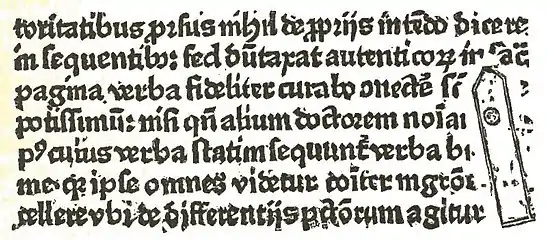 toritatibus ꝑrsus nihil de ꝓprijs intēdo dicere
in sequentibꝯ: sed dūtaxat autenticoꝝ in sac̄
pagina verba fideliter curabo ɔnectē
potissimū: nisi qn̄ alium doctorem noīa
pꝰ cuius verba statim sequunt̄ verba
ipse omnes videtur
cellere vbi de differentijs agitur